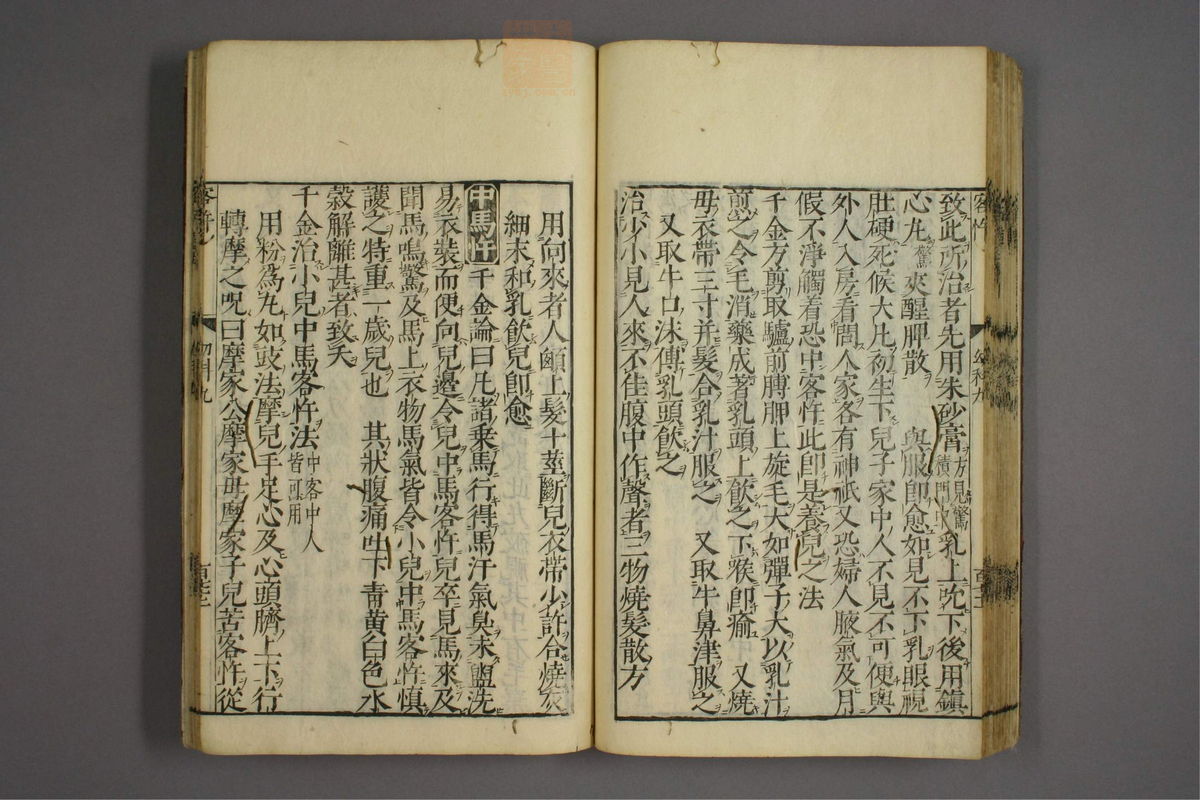 致此所治者先用朱砂膏方見驚積門中乳上吮下後用鎮
心丸驚夾醒脾散 與服即愈如見不下乳眼視
肚硬死候大凡初生下兒子家中人不見不可便與
外人入房看問人家各有神祇又恐婦人腋氣及月
假不淨觸着恐中客忤此即是養兒之法
千金方剪取驢前膊胛上旋毛大如彈子大以乳汁
煎之令毛消藥成著乳頭上飲之下喉即瘉 又燒
母衣帶三寸并髮合乳汁服之 又取牛鼻津服之
又取牛口沫傅乳頭飲之
治少小見人來不佳腹中作聲者二物燒髮散方
用向來者人顖上髮十莖斷兒衣帶少許合燒灰
細末和乳飲兒即愈
中馬忤千金論曰凡諸乗馬行得馬汗氣臭未盥洗
易衣裝而便向兒邊令兒中馬客忤兒卒見馬來及
聞馬鳴驚及馬上衣物馬氣皆令小兒中馬客忤慎
護之特重一歲兒也 其狀腹痛吐下青黄白色水
穀解離甚者致夭
千金治小兒中馬客忤法中客中人皆可用
用粉為丸如豉法摩兒手足心及心頭臍上下行
轉摩之呪曰摩家公摩家母摩家子兒苦客忤從